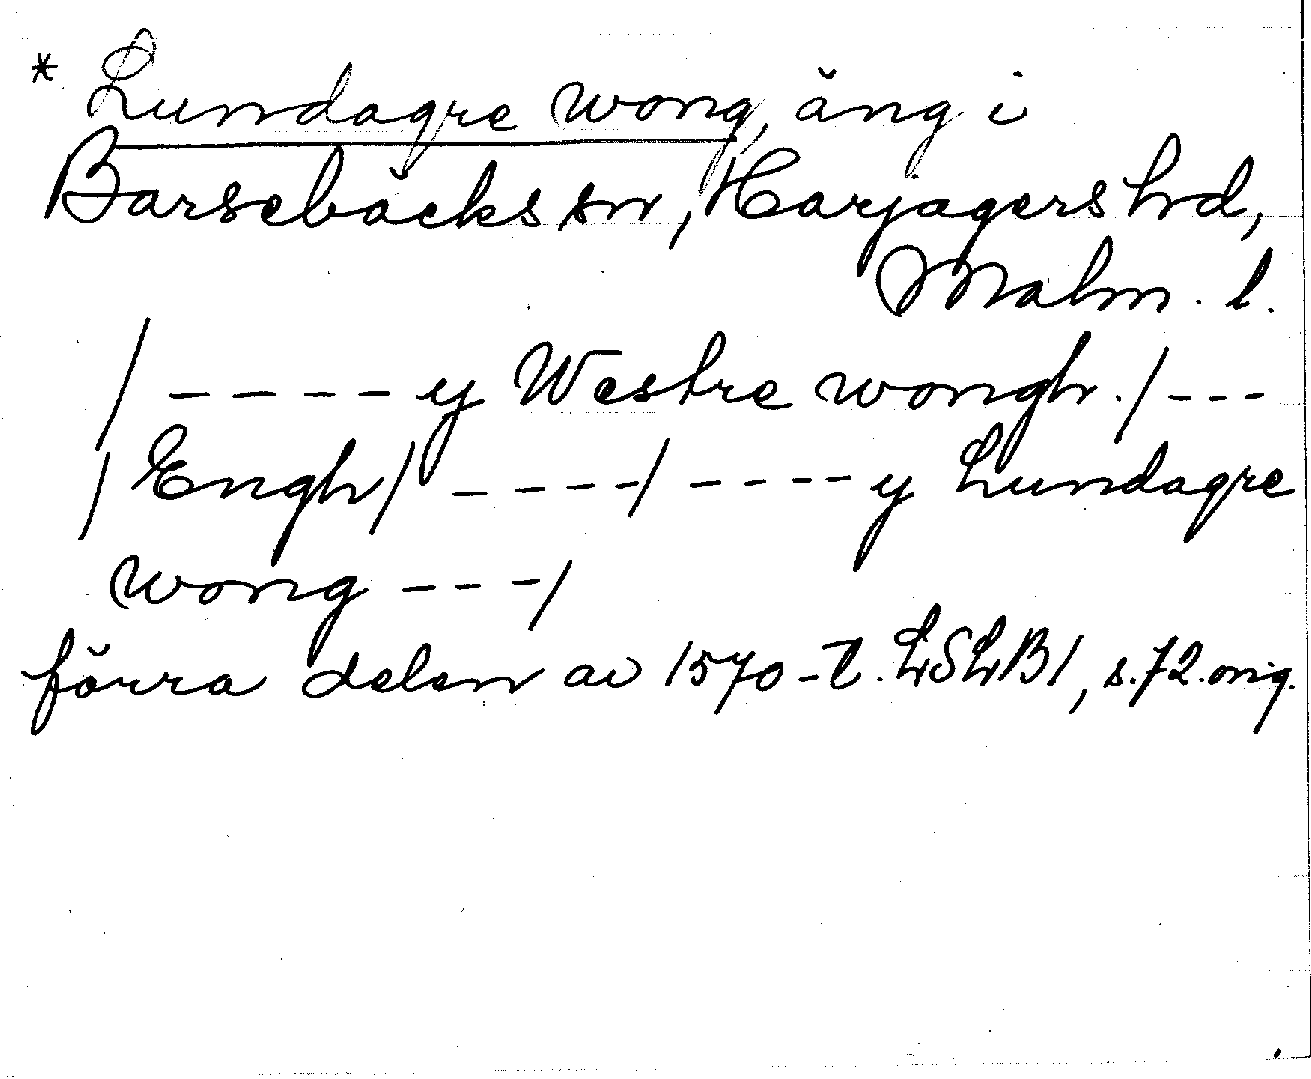 * Lundagre wong, äng i
Barsebäcks sn, Harjagers hrd,
Malm. l.
/ ---- y Westre wongh. / ---
/ Engh / ---- / ---- y Lundagre
wong --- /
förra delen av 1570-t. LSLB1, s. 72. orig.